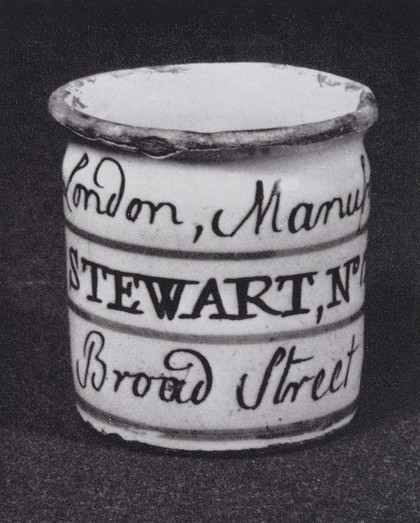 London, Manuf
STEWART, No
Broad Street